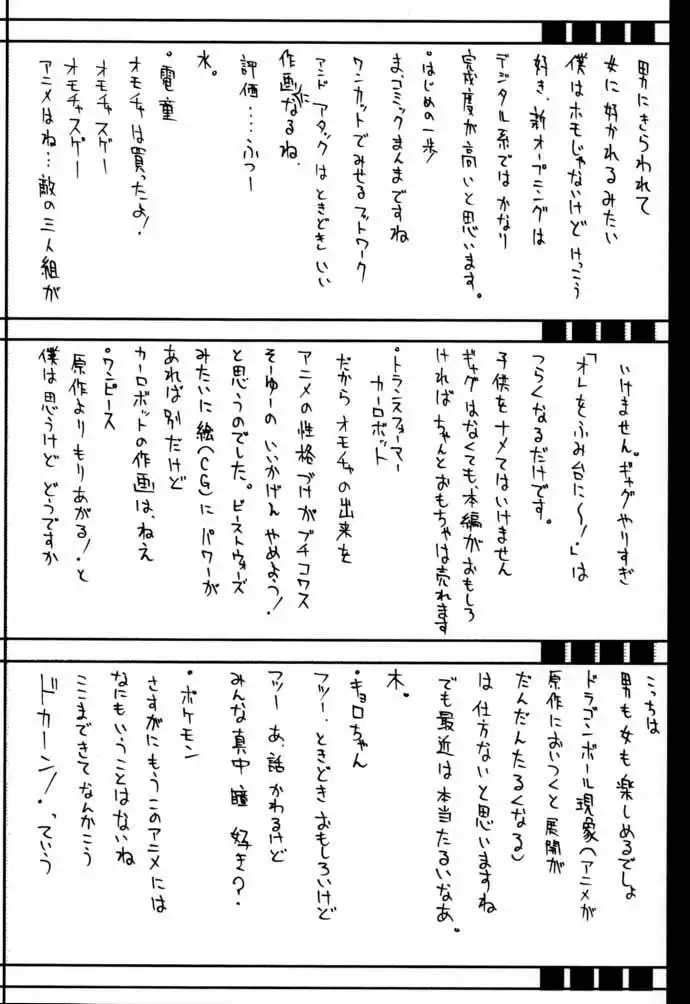 男にきらわれて
女に好かれるみたい
僕はホモじゃないけど けっこう
好き、新オープニングは
デジタル系ではかなり
完成度が高いと思います。
・はじめの一歩
ま、コミックまんまですね
ワンカットでみせるフットワーク
アンド アタックはときどきいい
作画になるね、
評価……ふつー
水。
・電童
オモチャは買ったよ!
オモチャスゲー
オモチャスゲー
アニメはね…敵の三人組が
いけません。ギャグやりすぎ
「オレをふみ台に〜!」は
つらくなるだけです。
子供をナメてはいけません
ギャグはなくても、本編がおもしろ
ければちゃんとおもちゃは売れます
・トランスフォーマー
カーロボット
だから オモチャの出来を
アニメの性格づけがブチコワス
そーゆーの いいかげん やめよう!
と思うのでした。ビーストウォーズ
みたいに絵(CG)に パワーが
あれば別だけど
カーロボットの作画は、ねえ
・ワンピース
原作よりもりあがる!と
僕は思うけど どうですか
こっちは
男も女も楽しめるでしょ
ドラゴンボール現象(アニメが
原作においつくと展開が
だんだんたるくなる)
は 仕方ないと思いますね
でも最近は本当たるいなあ。
木。
・キョロちゃん
フツー、ときどき おもしろいけど
アッー あ、話 かわるけど
みんな真中 瞳 好き?
・ポケモン
さすがにもうこのアニメには
なにもいうことはないね
ここまできてなんかこう
ドカーン!っていう